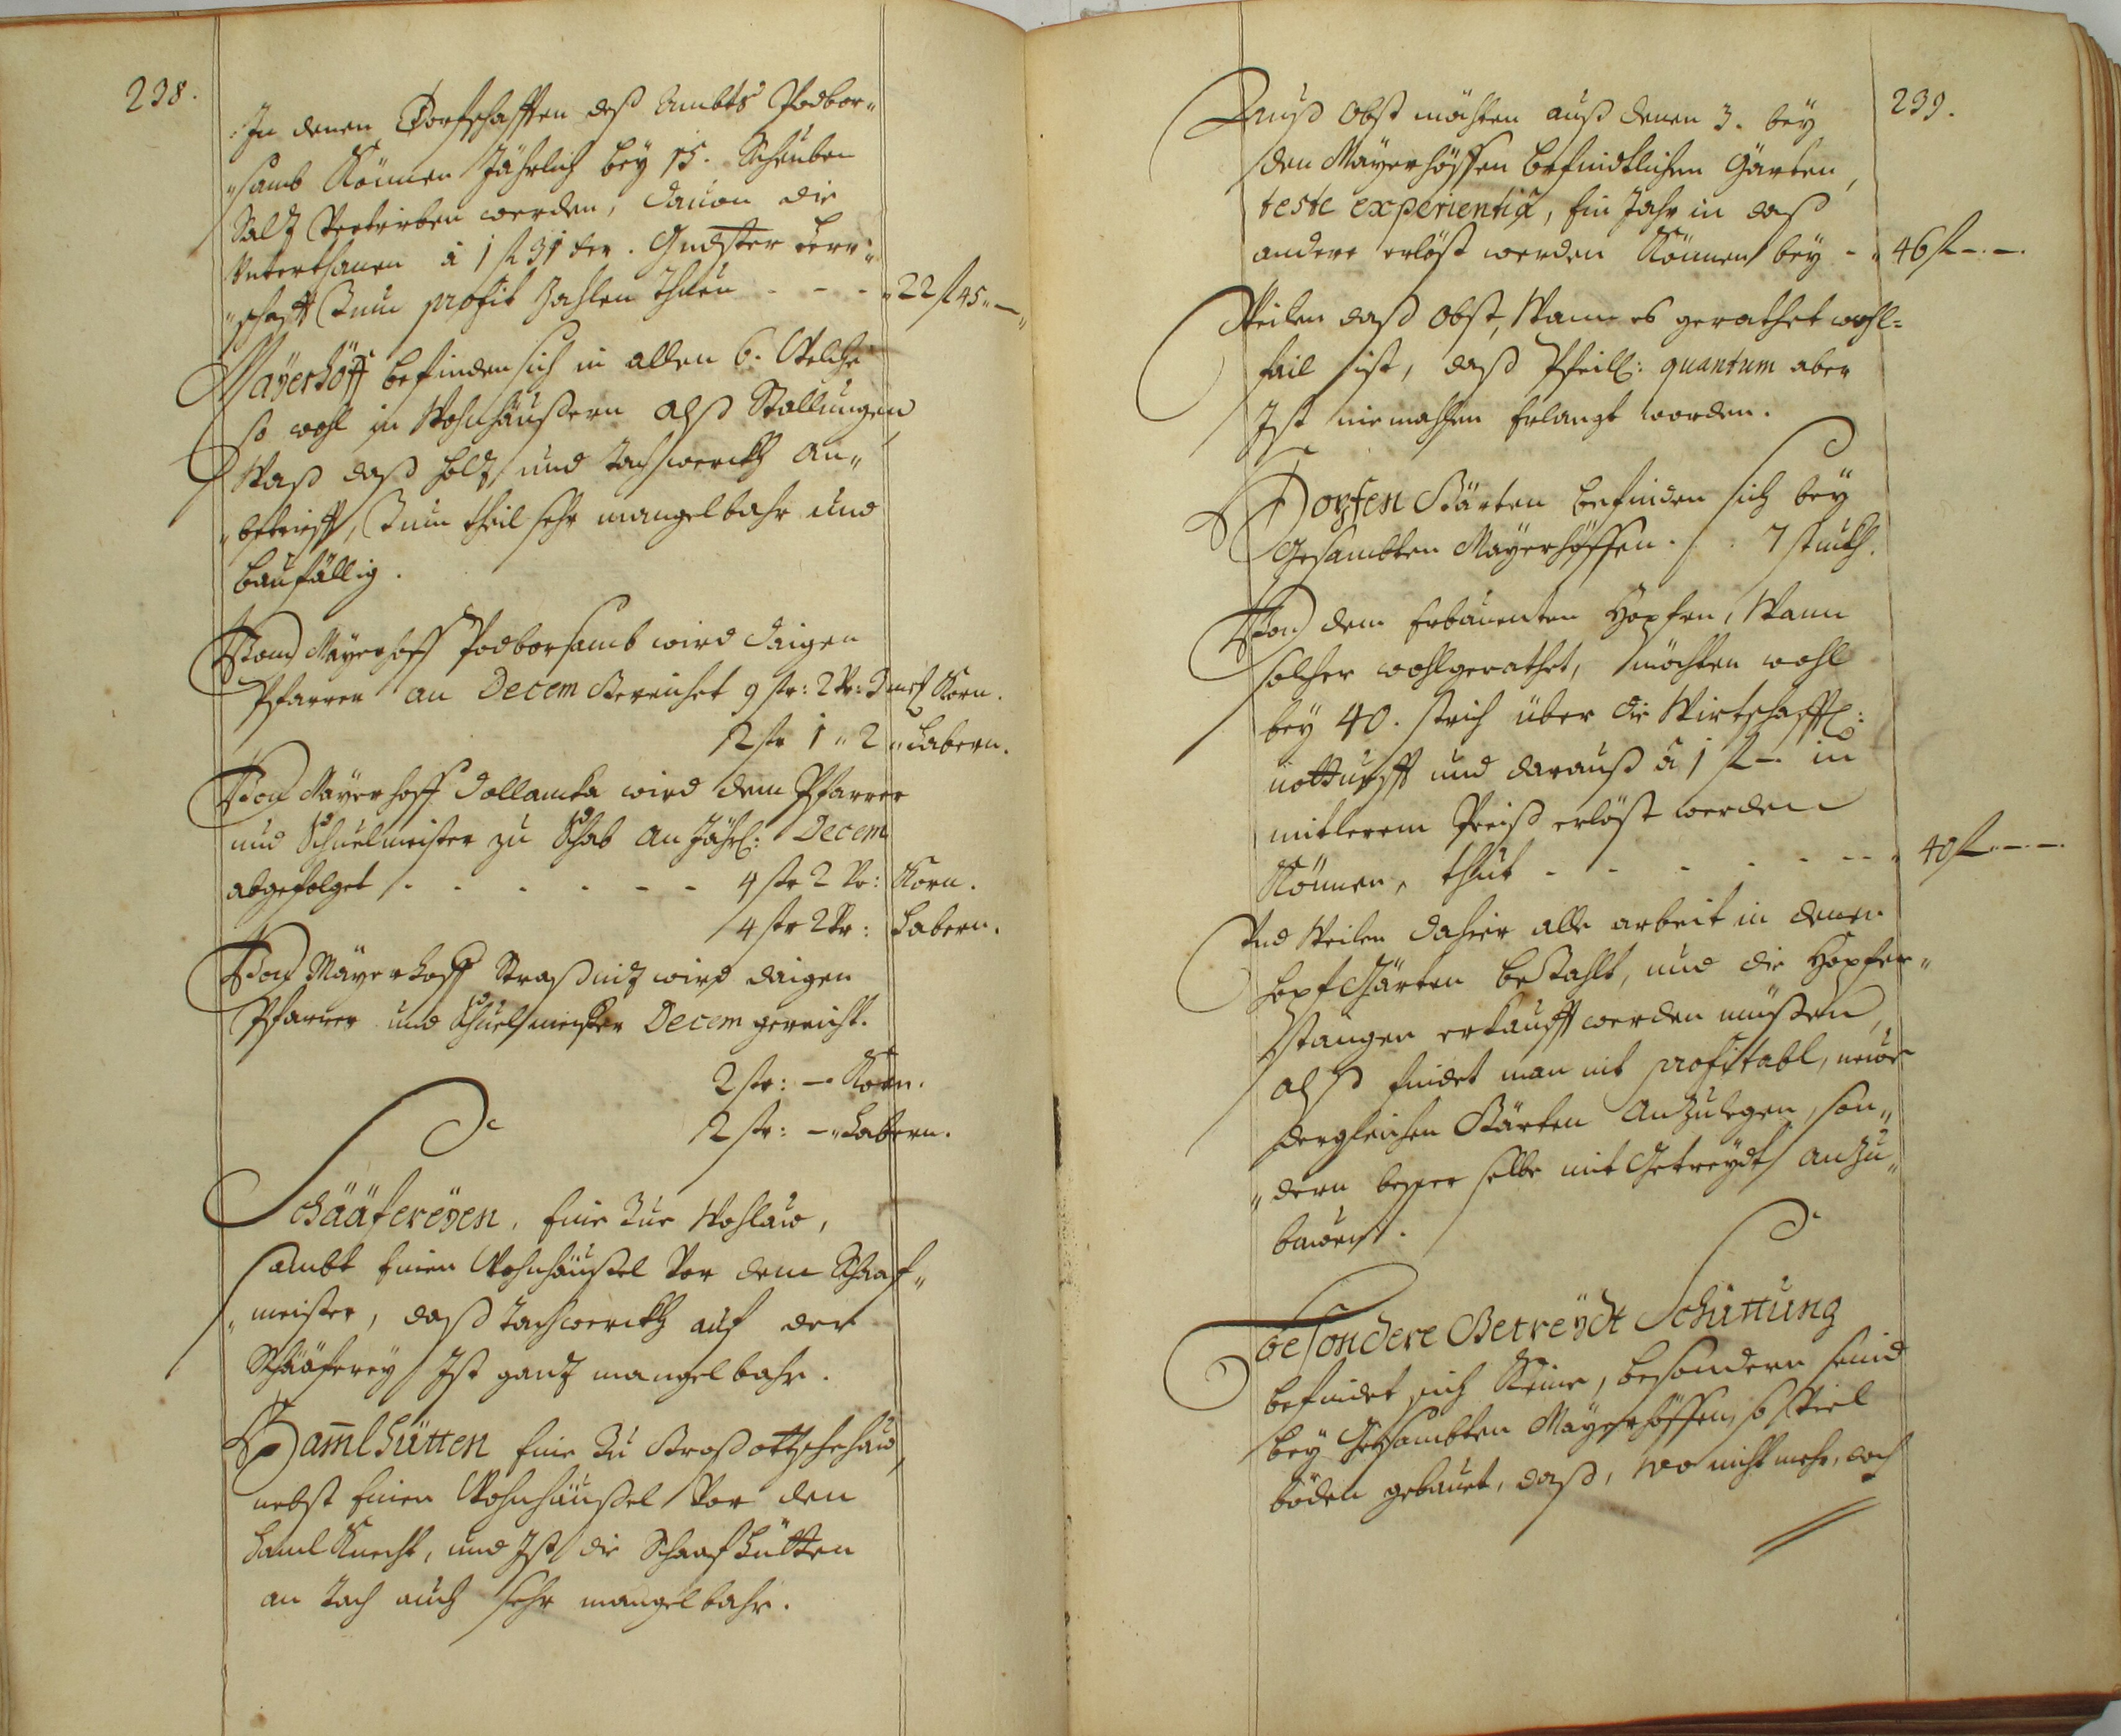 238.
In denen Dorfschafften deß Ambts Podbor„
„samb Können Jährlich bey 15. Scheuben
Saltz Vertriben werden, dauon die
Vnterthanen â 1 fl 31 Xer. Gndster Herr„
„schafft Zum profit Zahlen thuen - - - „ 22 fl 45 „ —
Mayerhöff befinden sich in allen 6. Welche
so wohl in Wohnhäußern alß Stallungen
Waß daß holtz und tachwerckh an„
„betrifft, Zum theil sehr mangelbahr und
baufällig.
Von Mayerhoff Podborsamb wird daigen
Pfarrer an Decem Gereichet 9 str: 2 Vr: 3 Korn.
12 str 1 „ 2 „ Habern.
Von Mayerhoff Dollanka wird dem Pfarrer
und Schuelmeister zu Schab an Jährl: Decem
abgefolget - - - - - - 4 str 2 Vr: Korn.
4 str 2 Vr: Habern.
Von Mayerhoff Straßnitz wird daigen
Pfarrer und Schuelmeister Decem gereicht.
2 str: — Korn.
12 str: — „ Habern.
Schääfereÿen, Eine Zue Wohlau,
sambt Einen Wohnhäußel Vor dem Schaaf„
„meister, daß tachwerckh auf der
Schääferey Ist gantz mangelbahr.
Hamlhütten Eine Zu Groß
nebst Einen Wohnhäußel Vor den
Haml Knecht, und Ist die Schaafhütten
an tach auch sehr mangelbahr.
239.
Auß Obst möchten auß denen 3. bey
den Mayerhöffen befindtlichen Gärten,
teste experientiâ, Ein Jahr in daß
andere erlöst werden Können bey - „ 46 fl — . — .
Weilen daß Obst, Wann es gerathet wohl=
fail ist, daß Pfeill: quantum aber
Ist niemahlen Erlangt worden.
Hopfen Gärten befinden sich bey
Gesambten Mayerhöffen. 7 stuckh.
Von dem Erbauenten Hopfen, Wann
solcher wohlgerathet, möchten wohl
bey 40. strich über die Wirtschafftl:
notturfft und darauß â 1 fl — in
mitlerem Preiß erlöst werden
Können, thut - - - - - - - „ 40 fl — . — .
Und Weilen dahier alle arbeit in denen
hopf Gärten beZahlt, und die Hopfen„
stangen erkaufft werden müßen,
alß findet man nit profitabl, neue
dergleichen Gärten anZulegen, son„
„dern besser selbe mit Getreydt anZu„
bauen.
Besondere Getreÿdt Schüttung
befindet sich Keine, besondern seind
bey Gesambten Mayerhöffen, so Viel
böden gebauet, daß, wo nicht mehr, doch